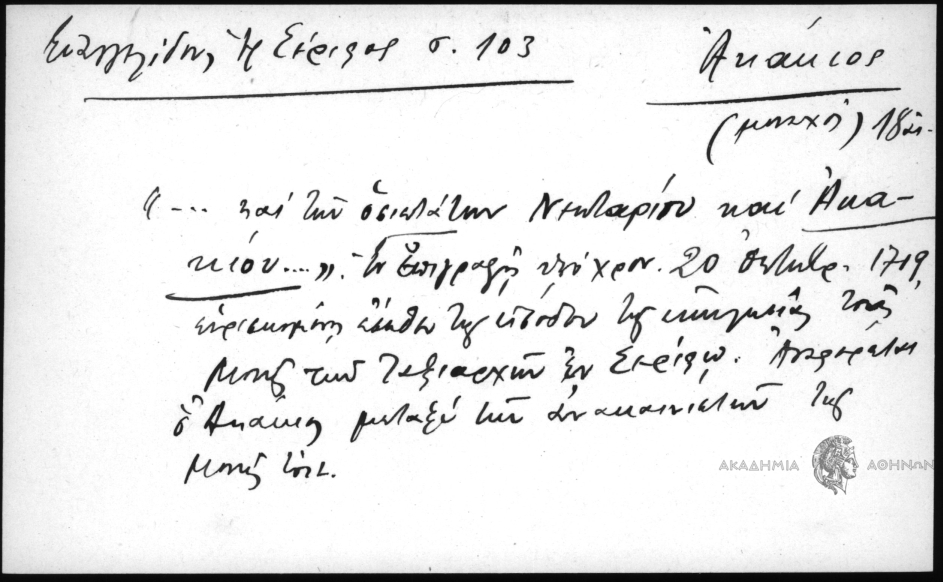 Ευαγγελίδου, Ἡ Σέριφος σ. 103
Ἀκάκιος
(μοναχὸς) 18 αι.
"--- καὶ τῶν ὁσιωτάτων Νεκταρίου καὶ Ἀκα-
κίου....". Ἐν ἐπιγραφῇ ὑπὸ χρον. 20 Ὀκτωβρ. 1719,
εὑρισκομένης ἄνωθεν τῆς εἰσόδου τῆς ἐκκλησίας τῆς
Μονῆς τῶν Ταξιαρχῶν ἐν Σερίφῳ. Ἀναφέρεται
ὁ Ἀκάκιος μεταξὺ τῶν ἀνακαινιστῶν τῆς
Μονῆς
ΑΚΑΔΗΜΙΑ ΑΘΗΝΩΝ